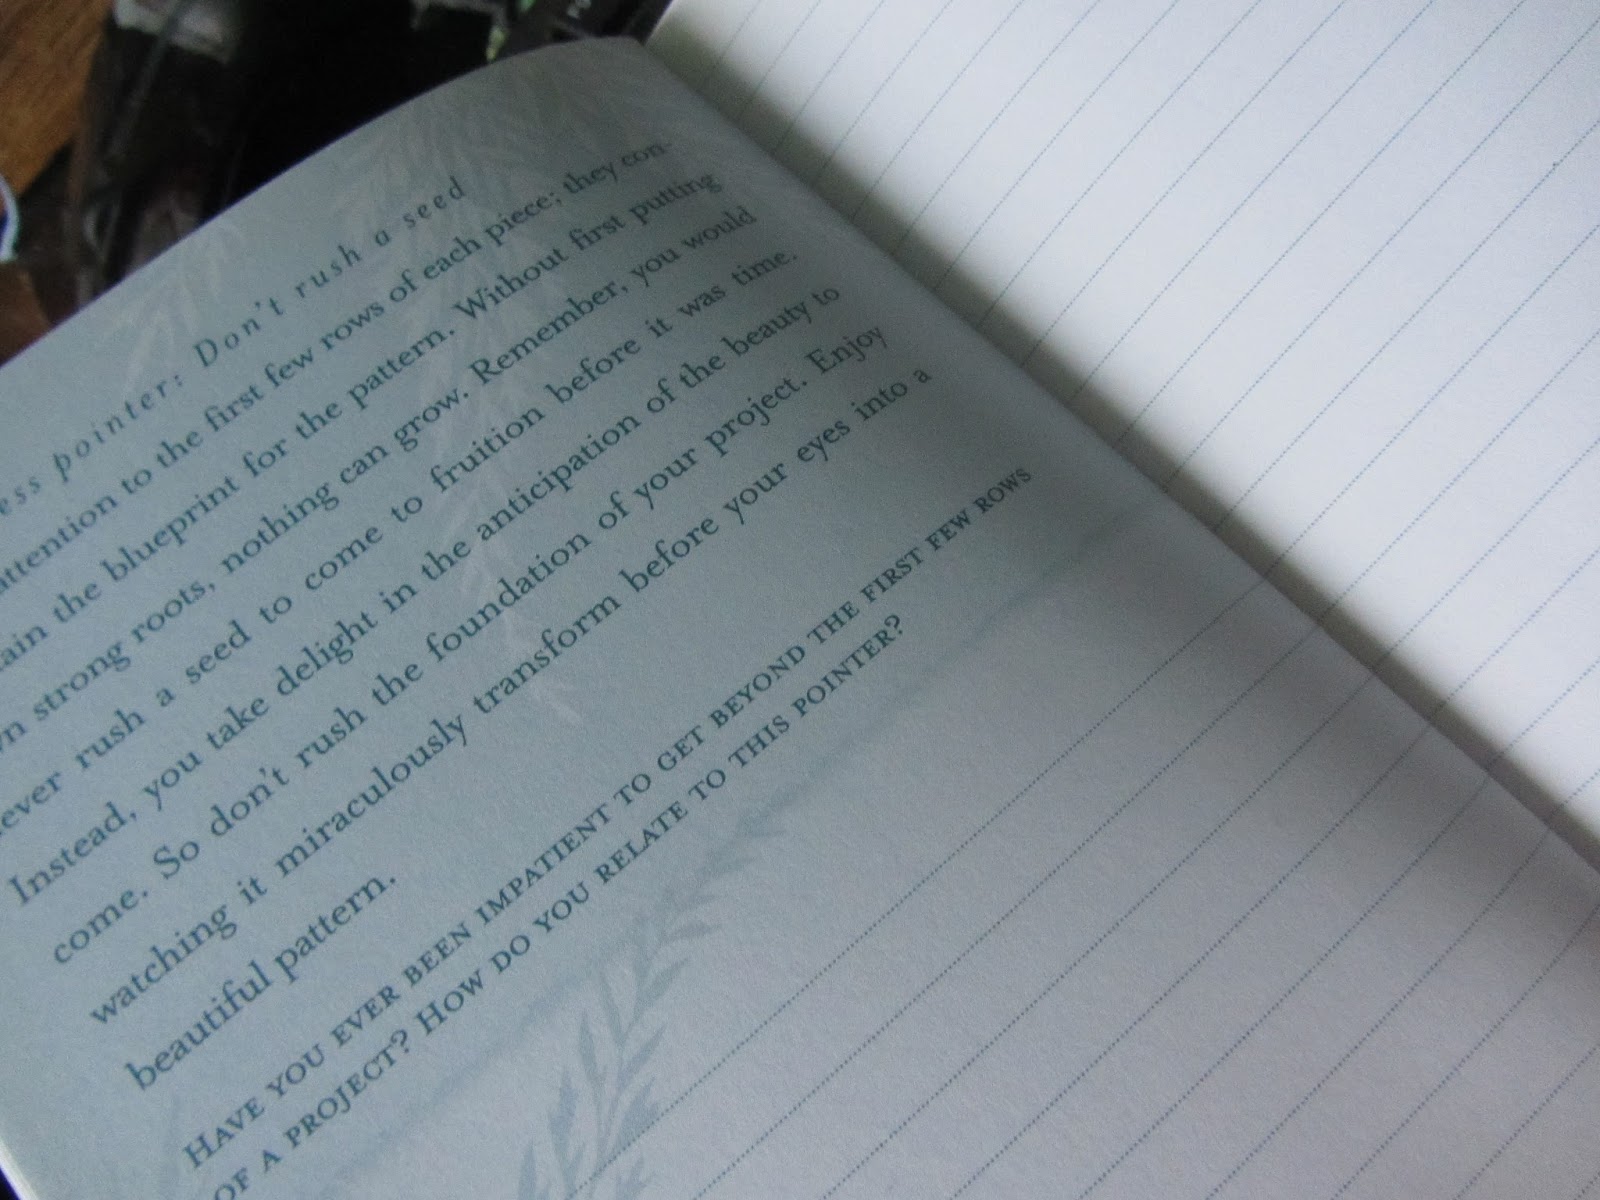 pointer: Don't rush a seed
attention to the first few rows of each piece; they con-
the blueprint for the pattern. Without first putting
strong roots, nothing can grow. Remember, you would
rush a seed to come to fruition before it was time.
Instead, you take delight in the anticipation of the beauty to
come. So don't rush the foundation of your project. Enjoy
watching it miraculously transform before your eyes into a
beautiful pattern.
HAVE YOU EVER BEEN IMPATIENT TO GET BEYOND THE FIRST FEW ROWS
OF A PROJECT? HOW DO YOU RELATE TO THIS POINTER?